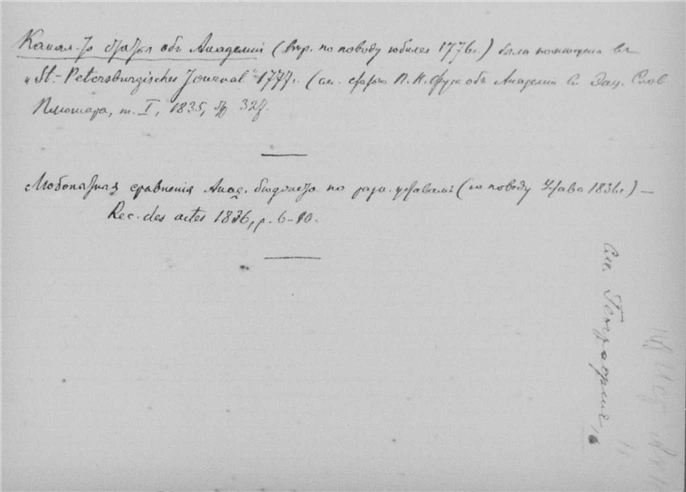 Какая-то статья об Академии (вер. по поводу юбилея 1776 г.) была помещена в
"St.-Petersburgisches Journal 1777 г. (см. статью П. Н. Фуса об Академии в Энц. Слов
Плюшара, т. I, 1835, стр 328.
Любопытная сравнения Акад. бюджета по разн. уставам (по поводу Устава 1836 г.) —
Rec. des actes 1836, p. 6-10.
См.